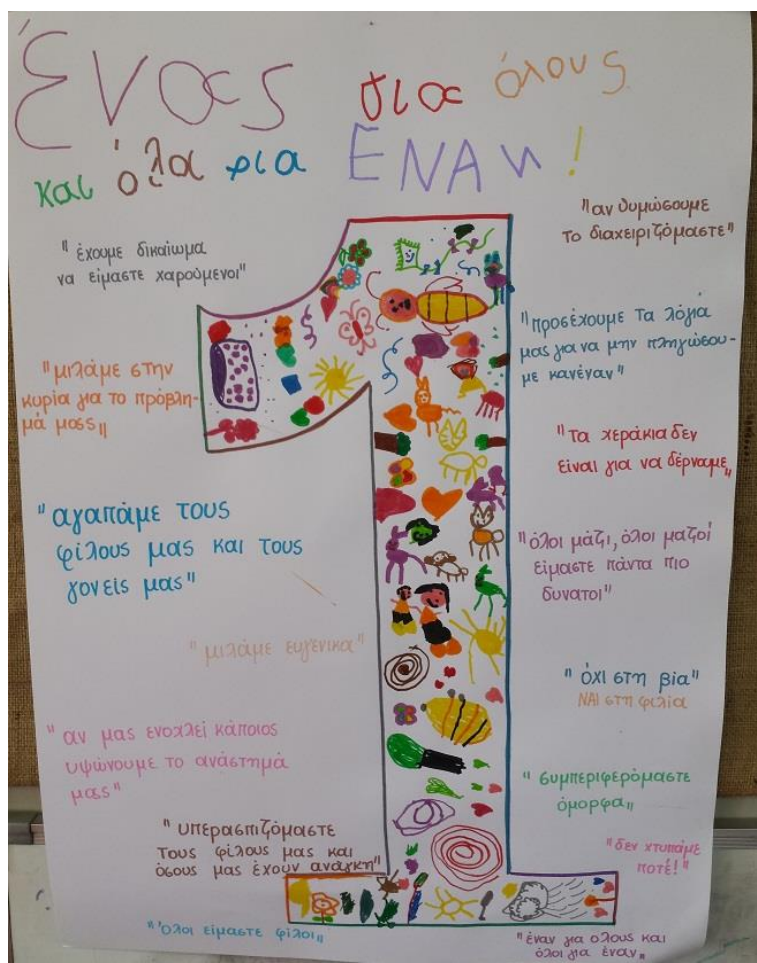 Ένας για όλους
και όλα για ΕΝΑΝ!
"έχουμε δικαίωμα
να είμαστε χαρούμενοι"
"μιλάμε στην
κυρία για το πρόβλη-
μά μας"
"αγαπάμε τους
φίλους μας και τους
γονείς μας"
"μιλάμε ευγενικα"
"αν μας ενοχλεί κάποιος
υψώνουμε το ανάστημά
μας"
"υπερασπιζόμαστε
τους φίλους μας και
όσους μας έχουν ανάγκη"
"Όλοι είμαστε φίλοι"
"αν θυμώσουμε
το διαχειριζόμαστε"
"προσέχουμε τα λόγιά
μας για να μην πληγώσου-
με κανέναν"
"Τα χεράκια δεν
είναι για να δέρναμε"
"όλοι μάζι, όλοι μαζοί
είμαστε πάντα πιο
δυνατοι"
"όχι στη βία"
ΝΑΙ στη φιλία
"συμπεριφερόμαστε
όμορφα"
"δεν χτυπάμε
ποτέ!"
"έναν για ολους και
όλοι για έναν"